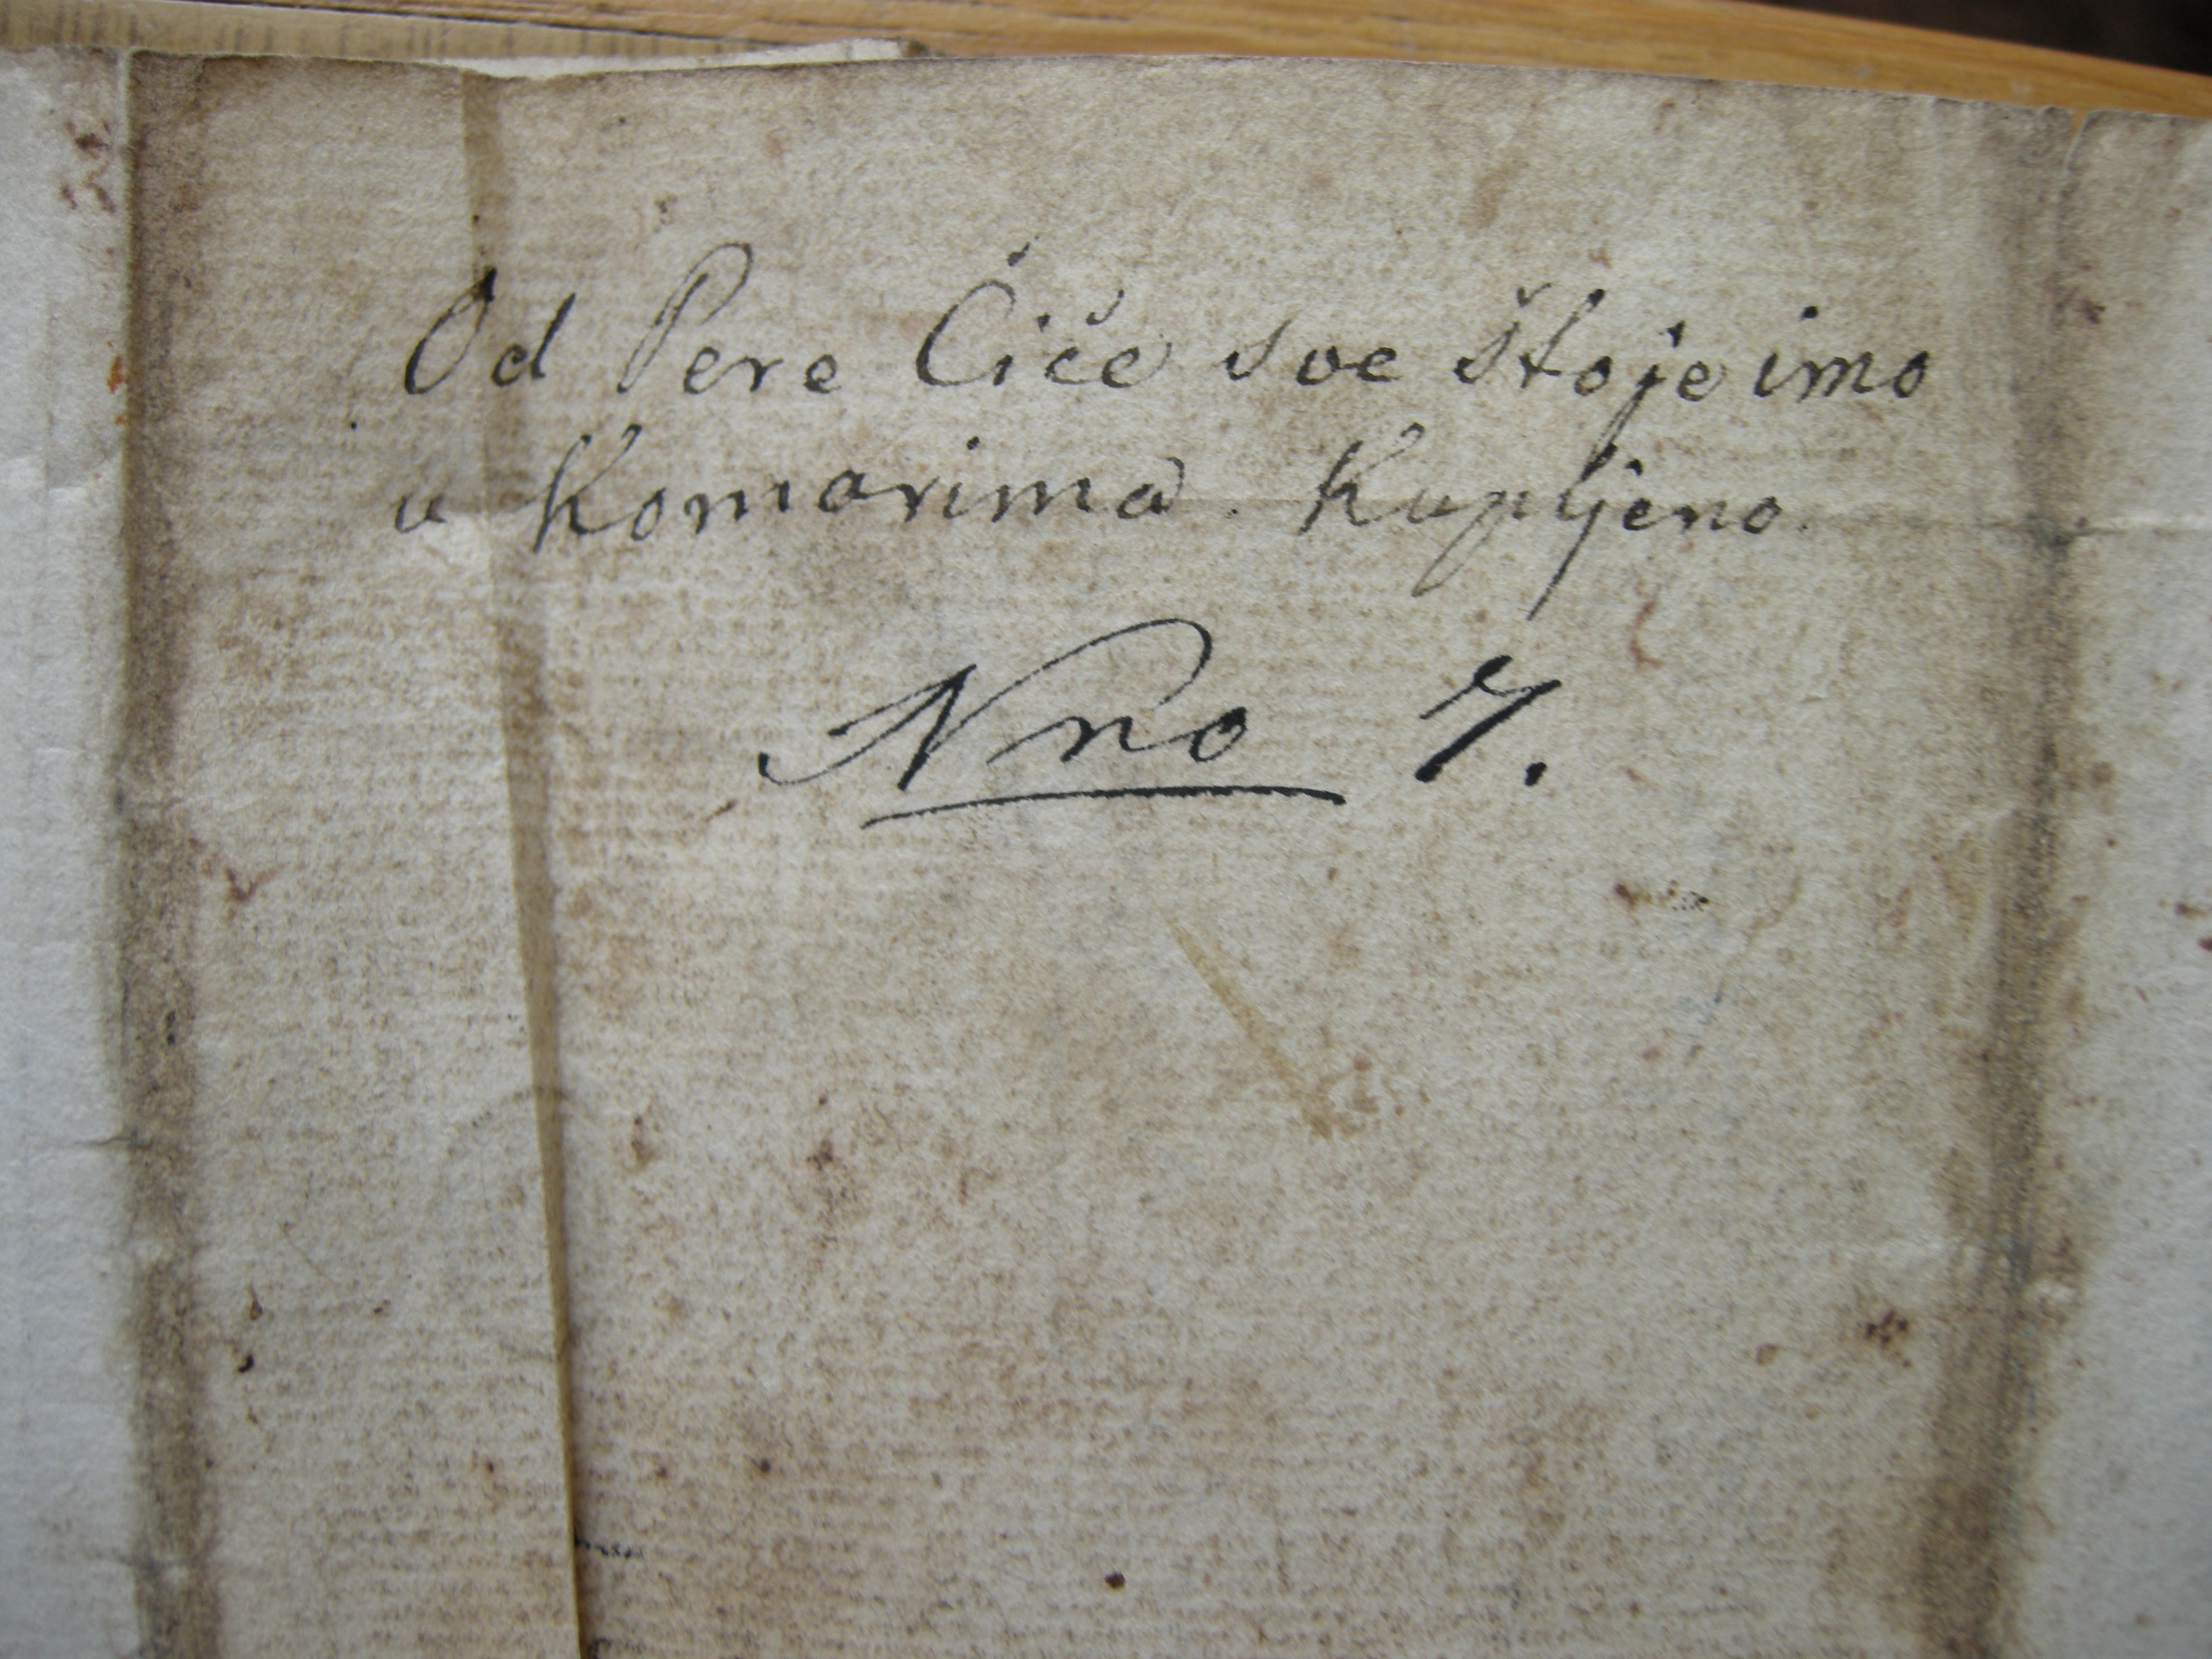 Od Pere Čiče sve štoje imo
u Komarima. Kupljeno.
Nno 7.